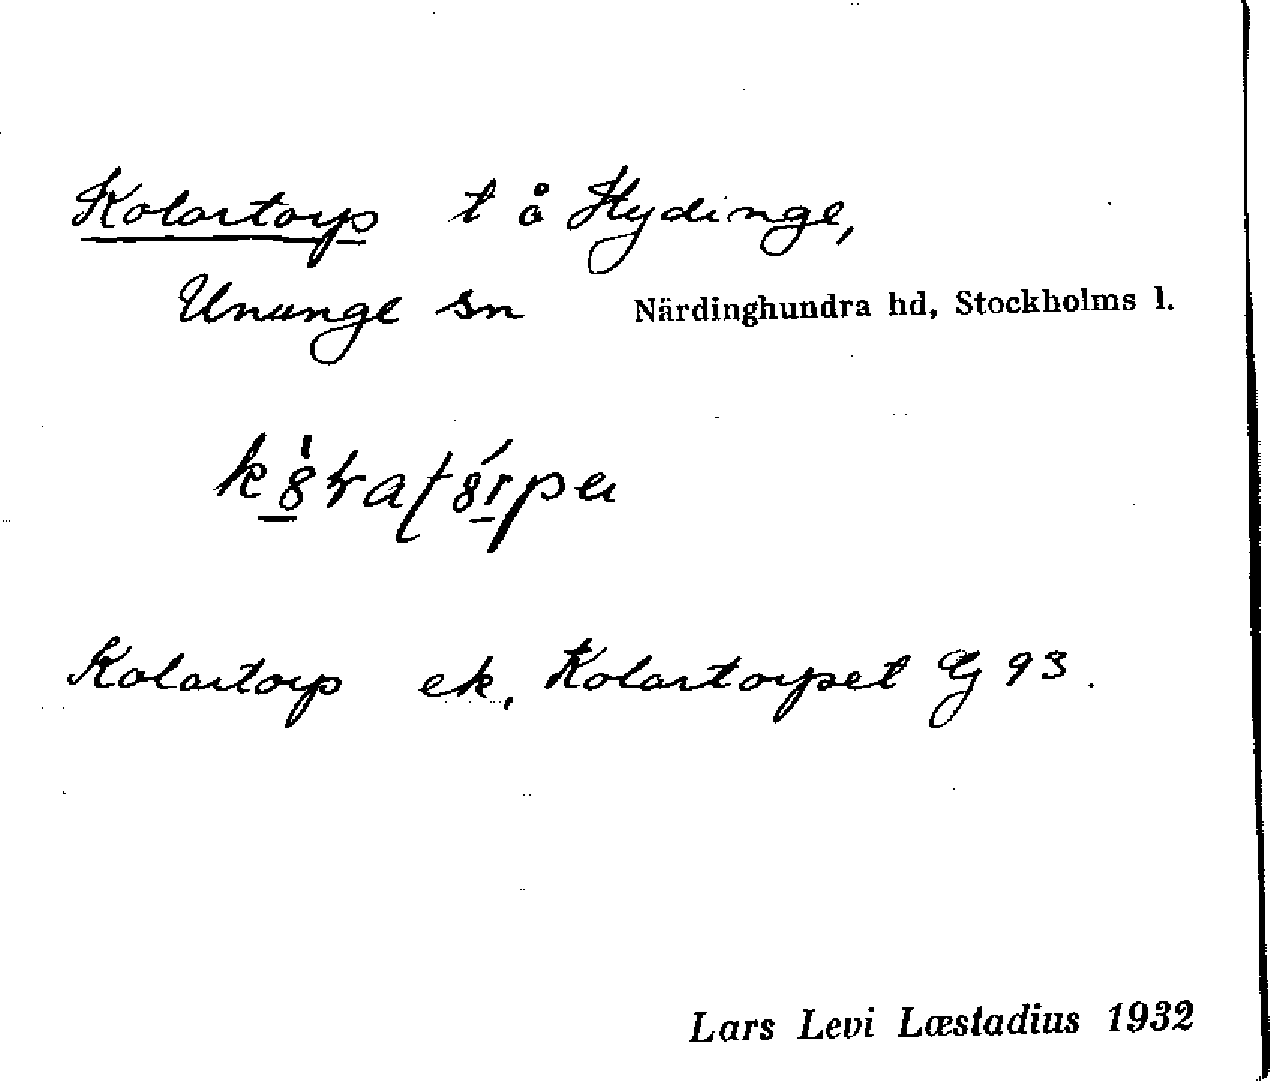 Kolartorp t å Hydinge,
Ununge sn Närdinghundra hd, Stockholms l.
Kolartorp ek, Kolartorpet Gj 93.
Lars Levi Læstadius 1932